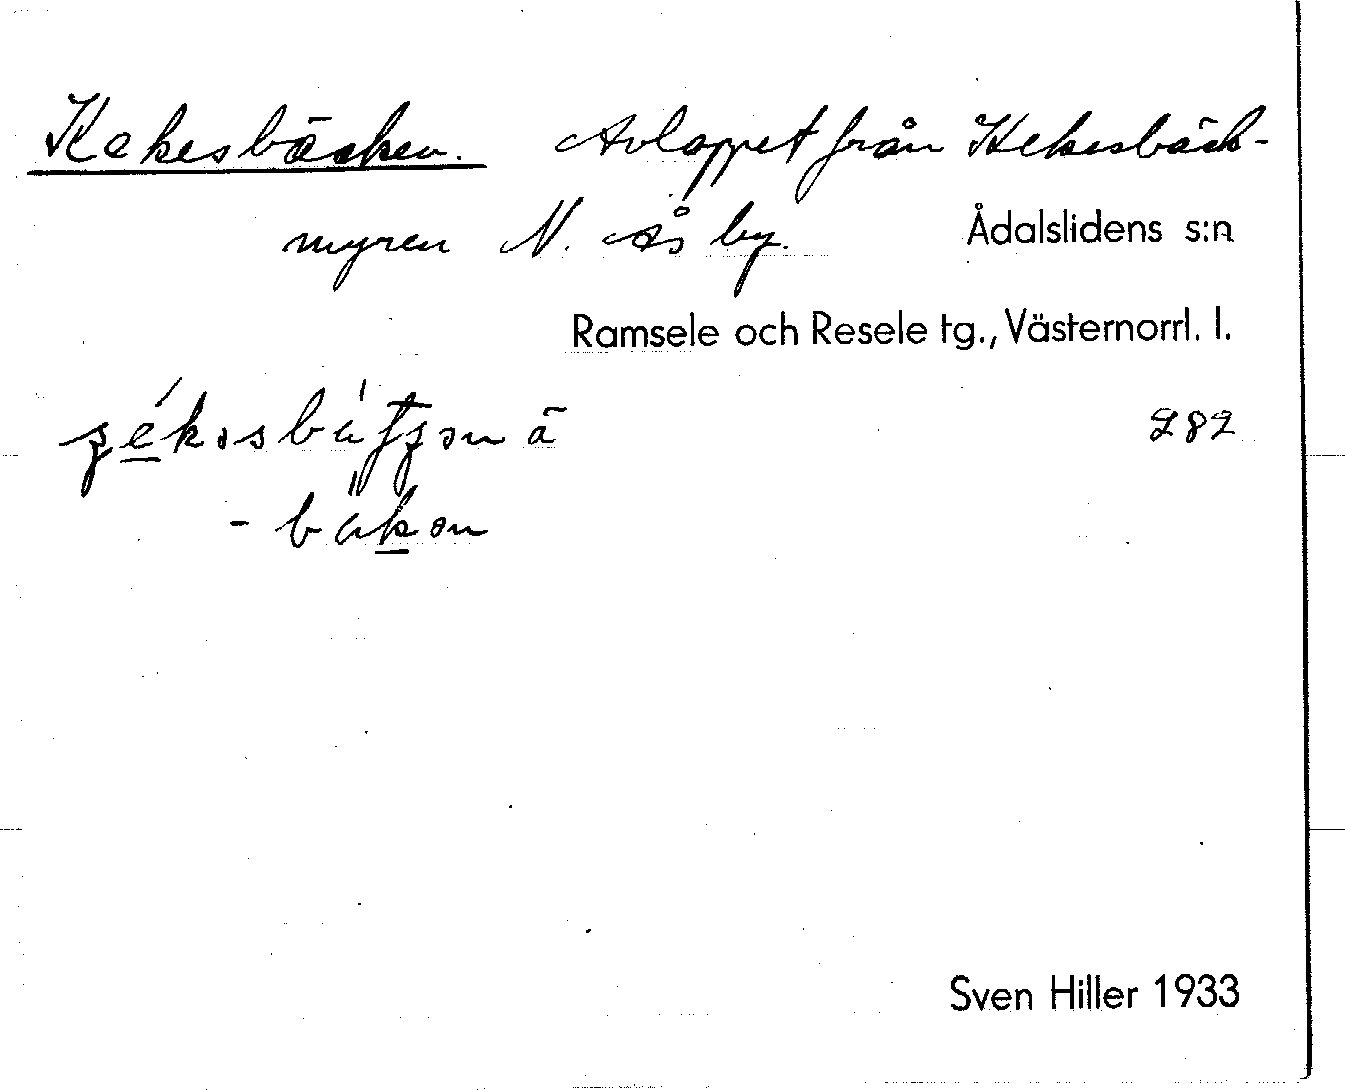 Kekesbäcken. Avloppet från Kekesbäck-
myren N. Ås by. Ådalslidens s:n
Ramsele och Resele tg., Västernorrl. l.
282
-bäkən
Sven Hiller 1933